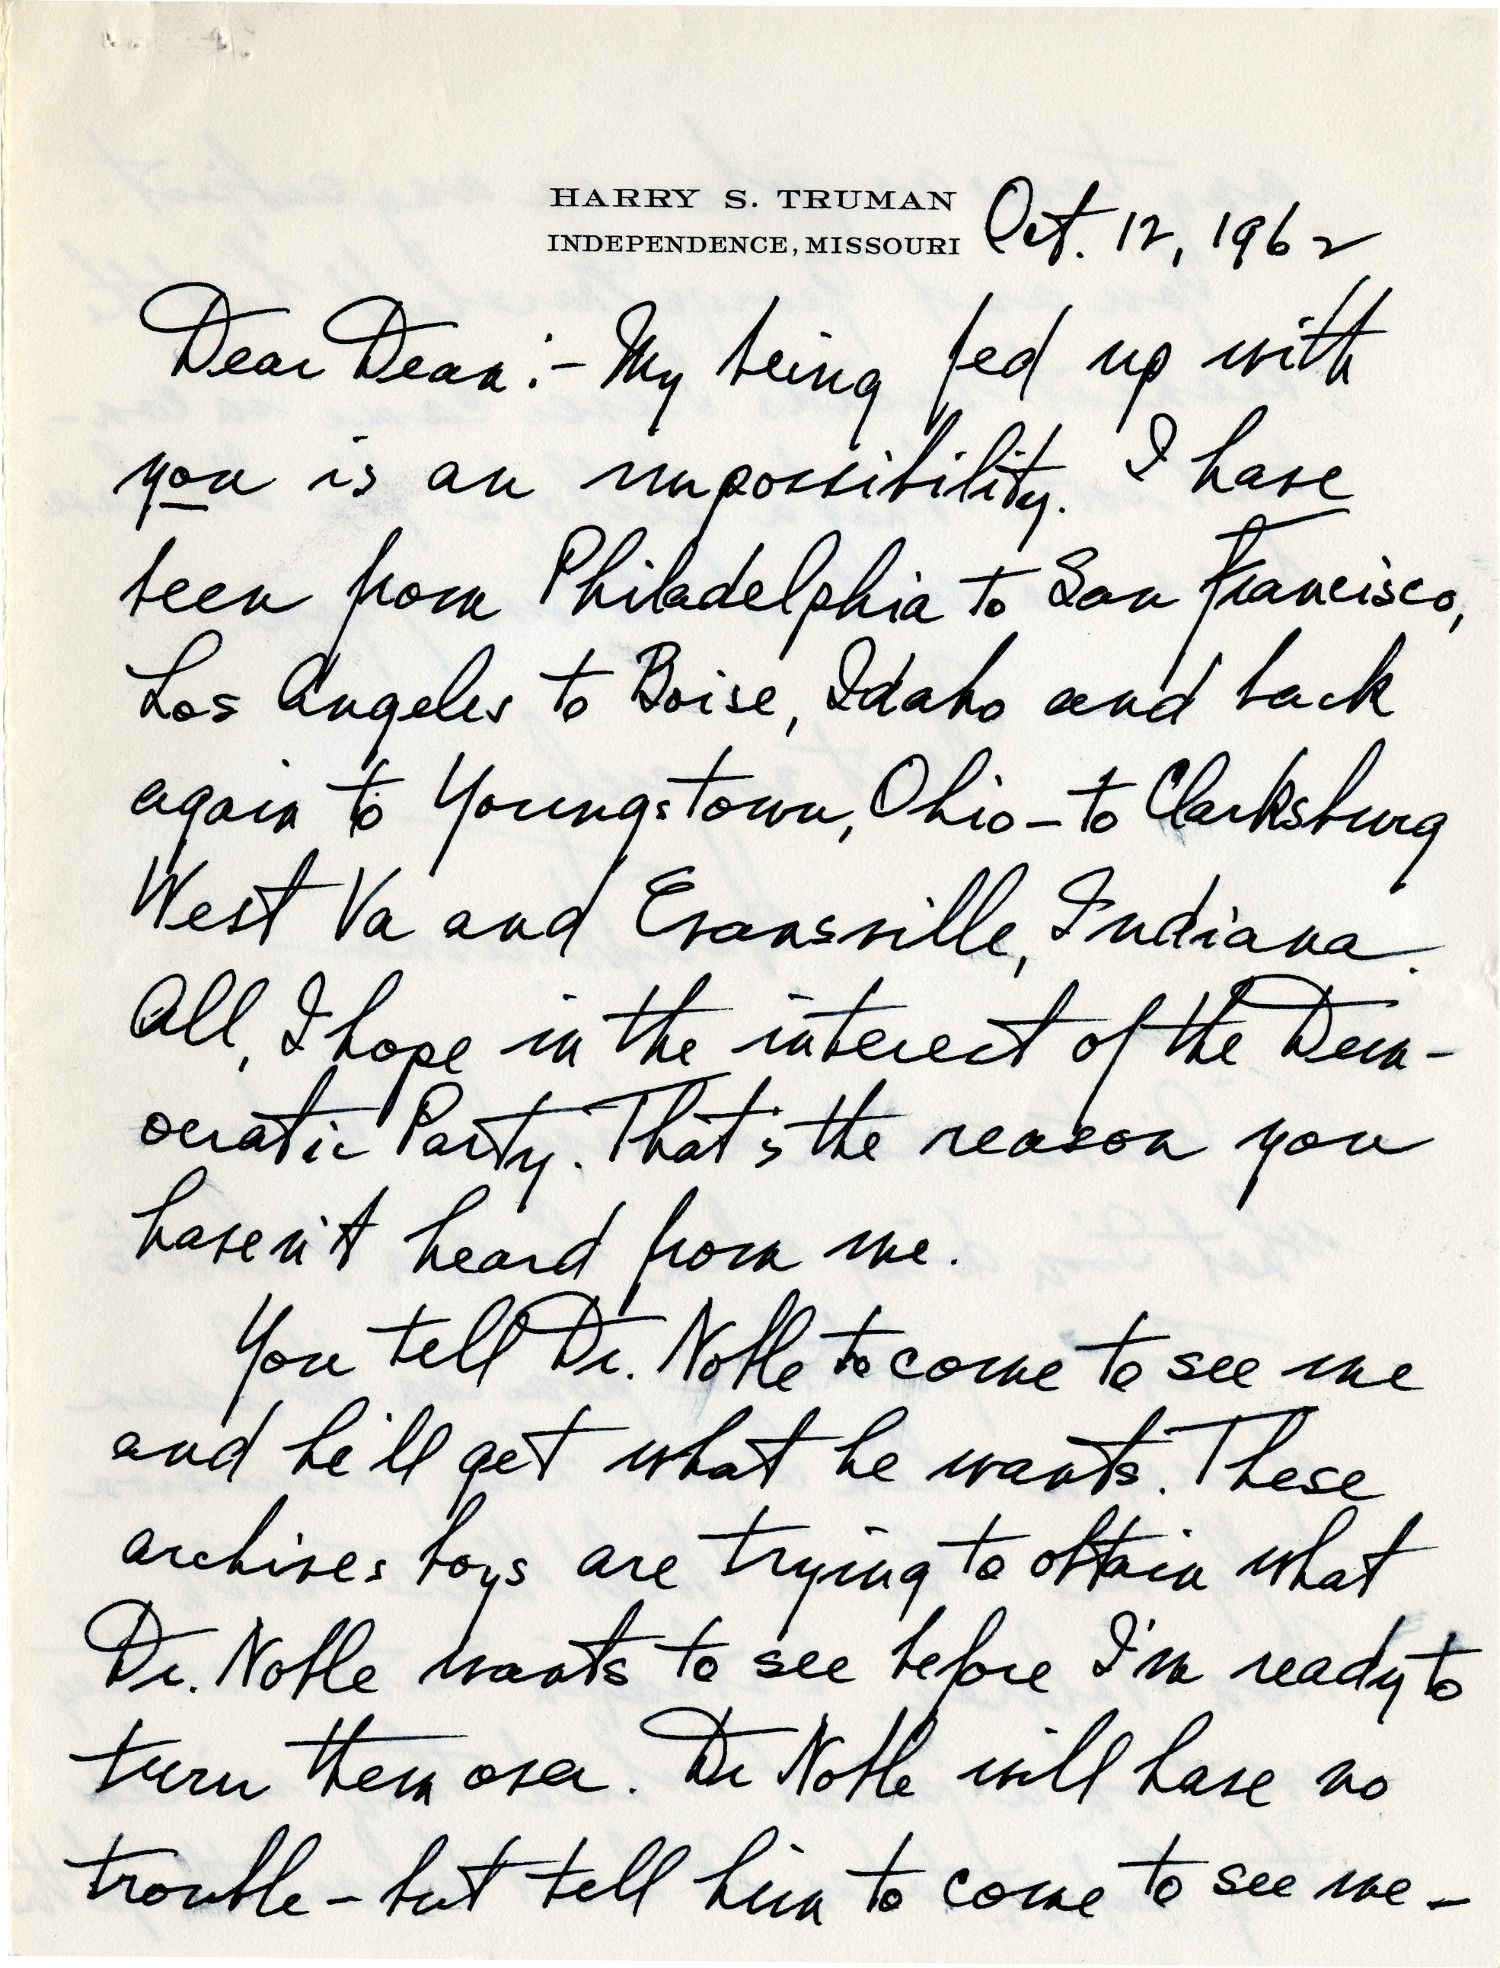 HARRY S. TRUMAN
INDEPENDENCE, MISSOURI Oct. 12, 1962
Dear Dean:- My being fed up with
you is an impossibility. I have
been from Philadelphia to San Francisco,
Los Angeles to Boise, Idaho and back
again to Youngstown, Ohio - to Clarksburg
West Va and Evansville, Indiana.
All, I hope in the interest of the Dem-
ocratic Party. That's the reason you
haven't heard from me.
You tell Dr. Noble to come to see me
and he'll get what he wants. These
archives boys are trying to obtain what
Dr. Noble wants to see before I'm ready to
turn them over. Dr Noble will have no
trouble - but tell him to come to see me -